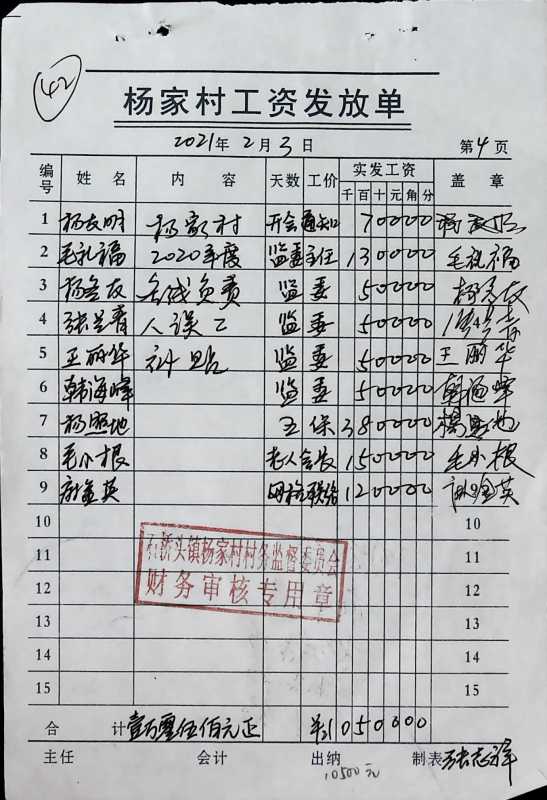 42
杨家村工资发放单
2021年2月3日 第4页
编号 姓名 内容 天数 工价 实发工资 盖章
千 百 十 元 角 分
1 杨友明 杨家村 开会通知 70000
2 毛礼福 2020年度 监委主任 130000 毛礼福
3 杨 友 条线负责 监委 50000
4 张 青 人误工 监委 50000
5 王丽华 补贴 监委 50000 王丽华
6 韩海峰 监委 50000 韩海峰
7 杨照地 五保 380000 杨照地
8 毛小根 老人会长 150000 毛小根
9 金英 网格联络 120000 金英
10 10
11 11
12 12
13 13
14 14
15 15
石桥头镇杨家村村务监督委员会
财务审核专用章
合计 壹万零伍佰元正 ¥:1050000
主任 会计 出纳 制表 张志祥
10500元